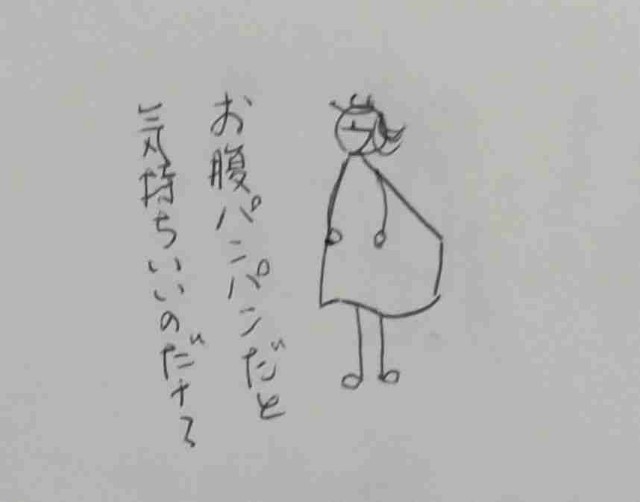 お腹パンパンだと
気持ちいいのだナろ